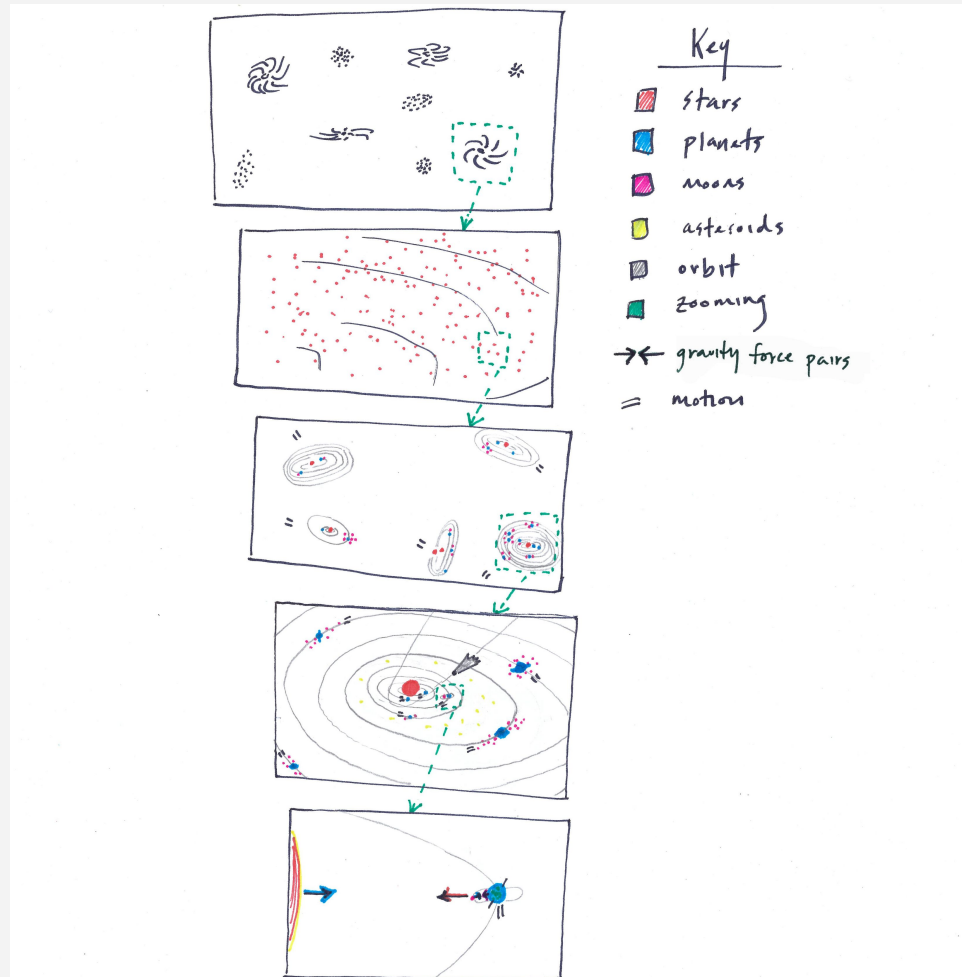 Key
stars
planets
moons
asteroids
orbit
zooming
gravity force pairs
motion